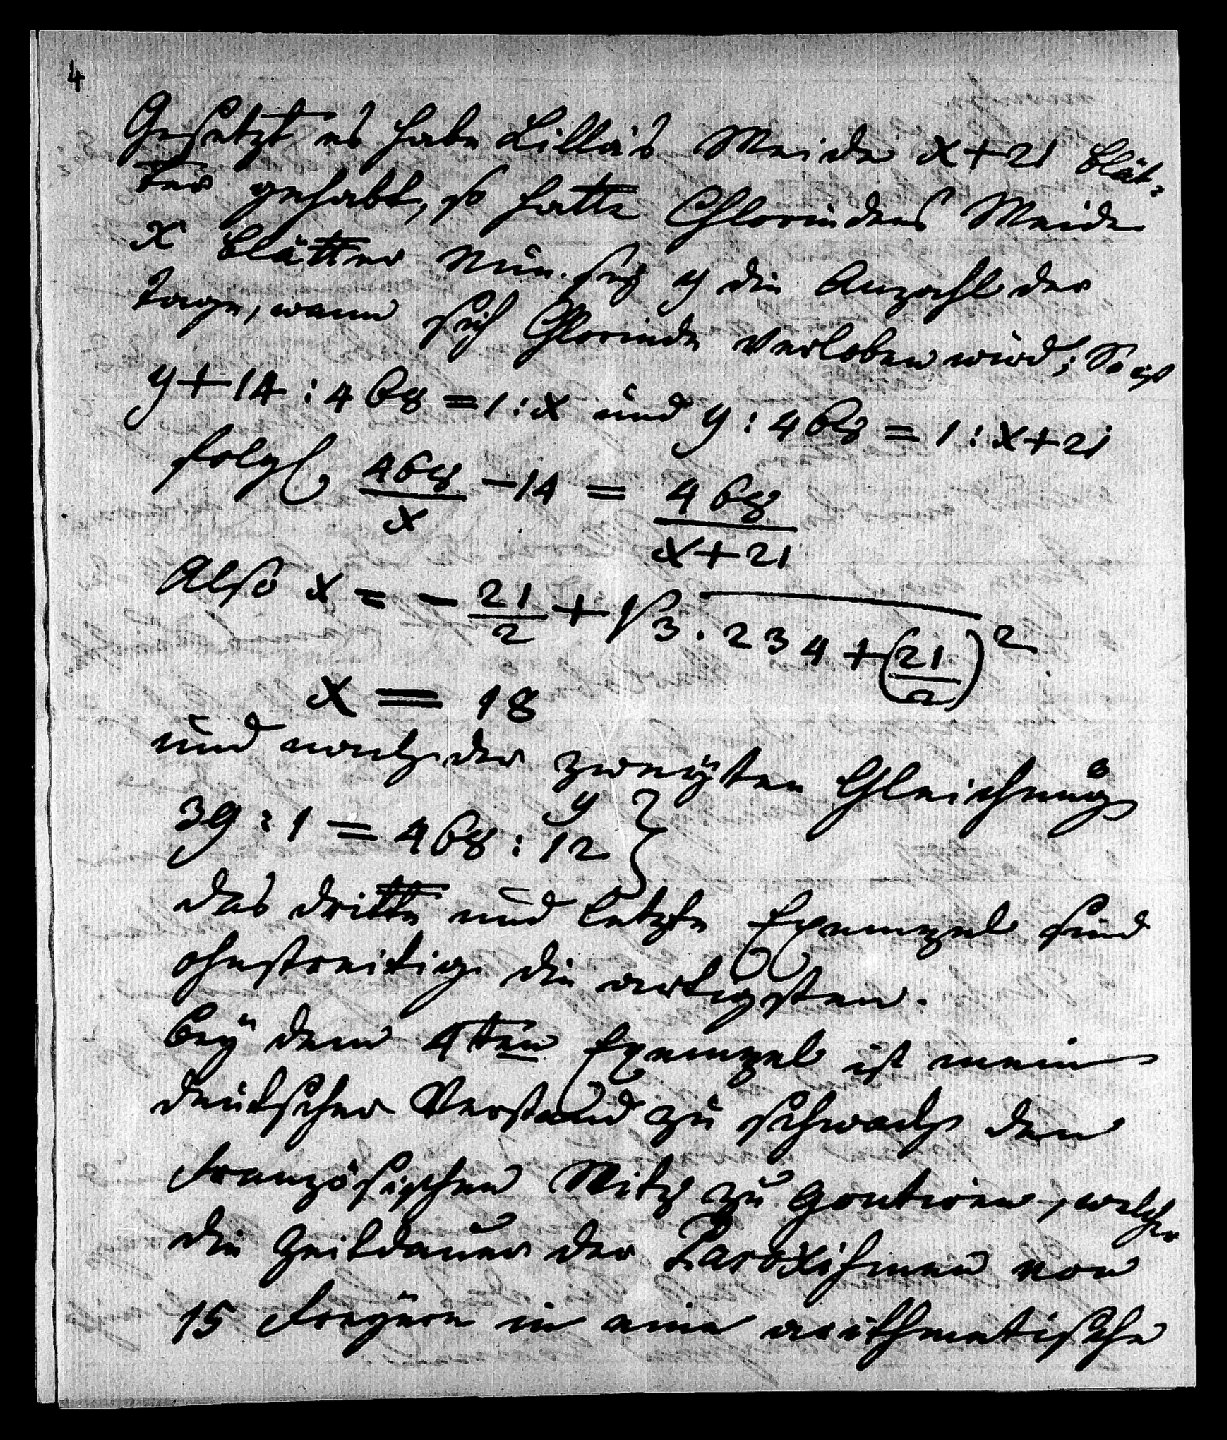 4
Gesetzt es habe Lilla's Weide x+21 Blät-
ter gehabt, so hatte Chlorindens Weide
x Blätter Nun sey y die Anzahl der
tage, wann sich Chlorinde verloben wird; So ist
y+14 : 468 = 1 : x und y : 468 = 1 : x+21
folgl 468/x - 14 = 468/(x+21)
Also x = - 21/2 + √3. 234 + (21/2)²
x = 18
und nach der zweyten Gleichung
39 : 1 = 468 : 12 y }
das dritte und letzte Exempel sind
ohnstreitig die artigsten.
bey dem 4ten Exempel ist mein
deutscher Verstand zu schwach den
französischen Witz zu goutiren, welcher
die Zeitdauer der Paroxismen von
15 in eine arithmetische